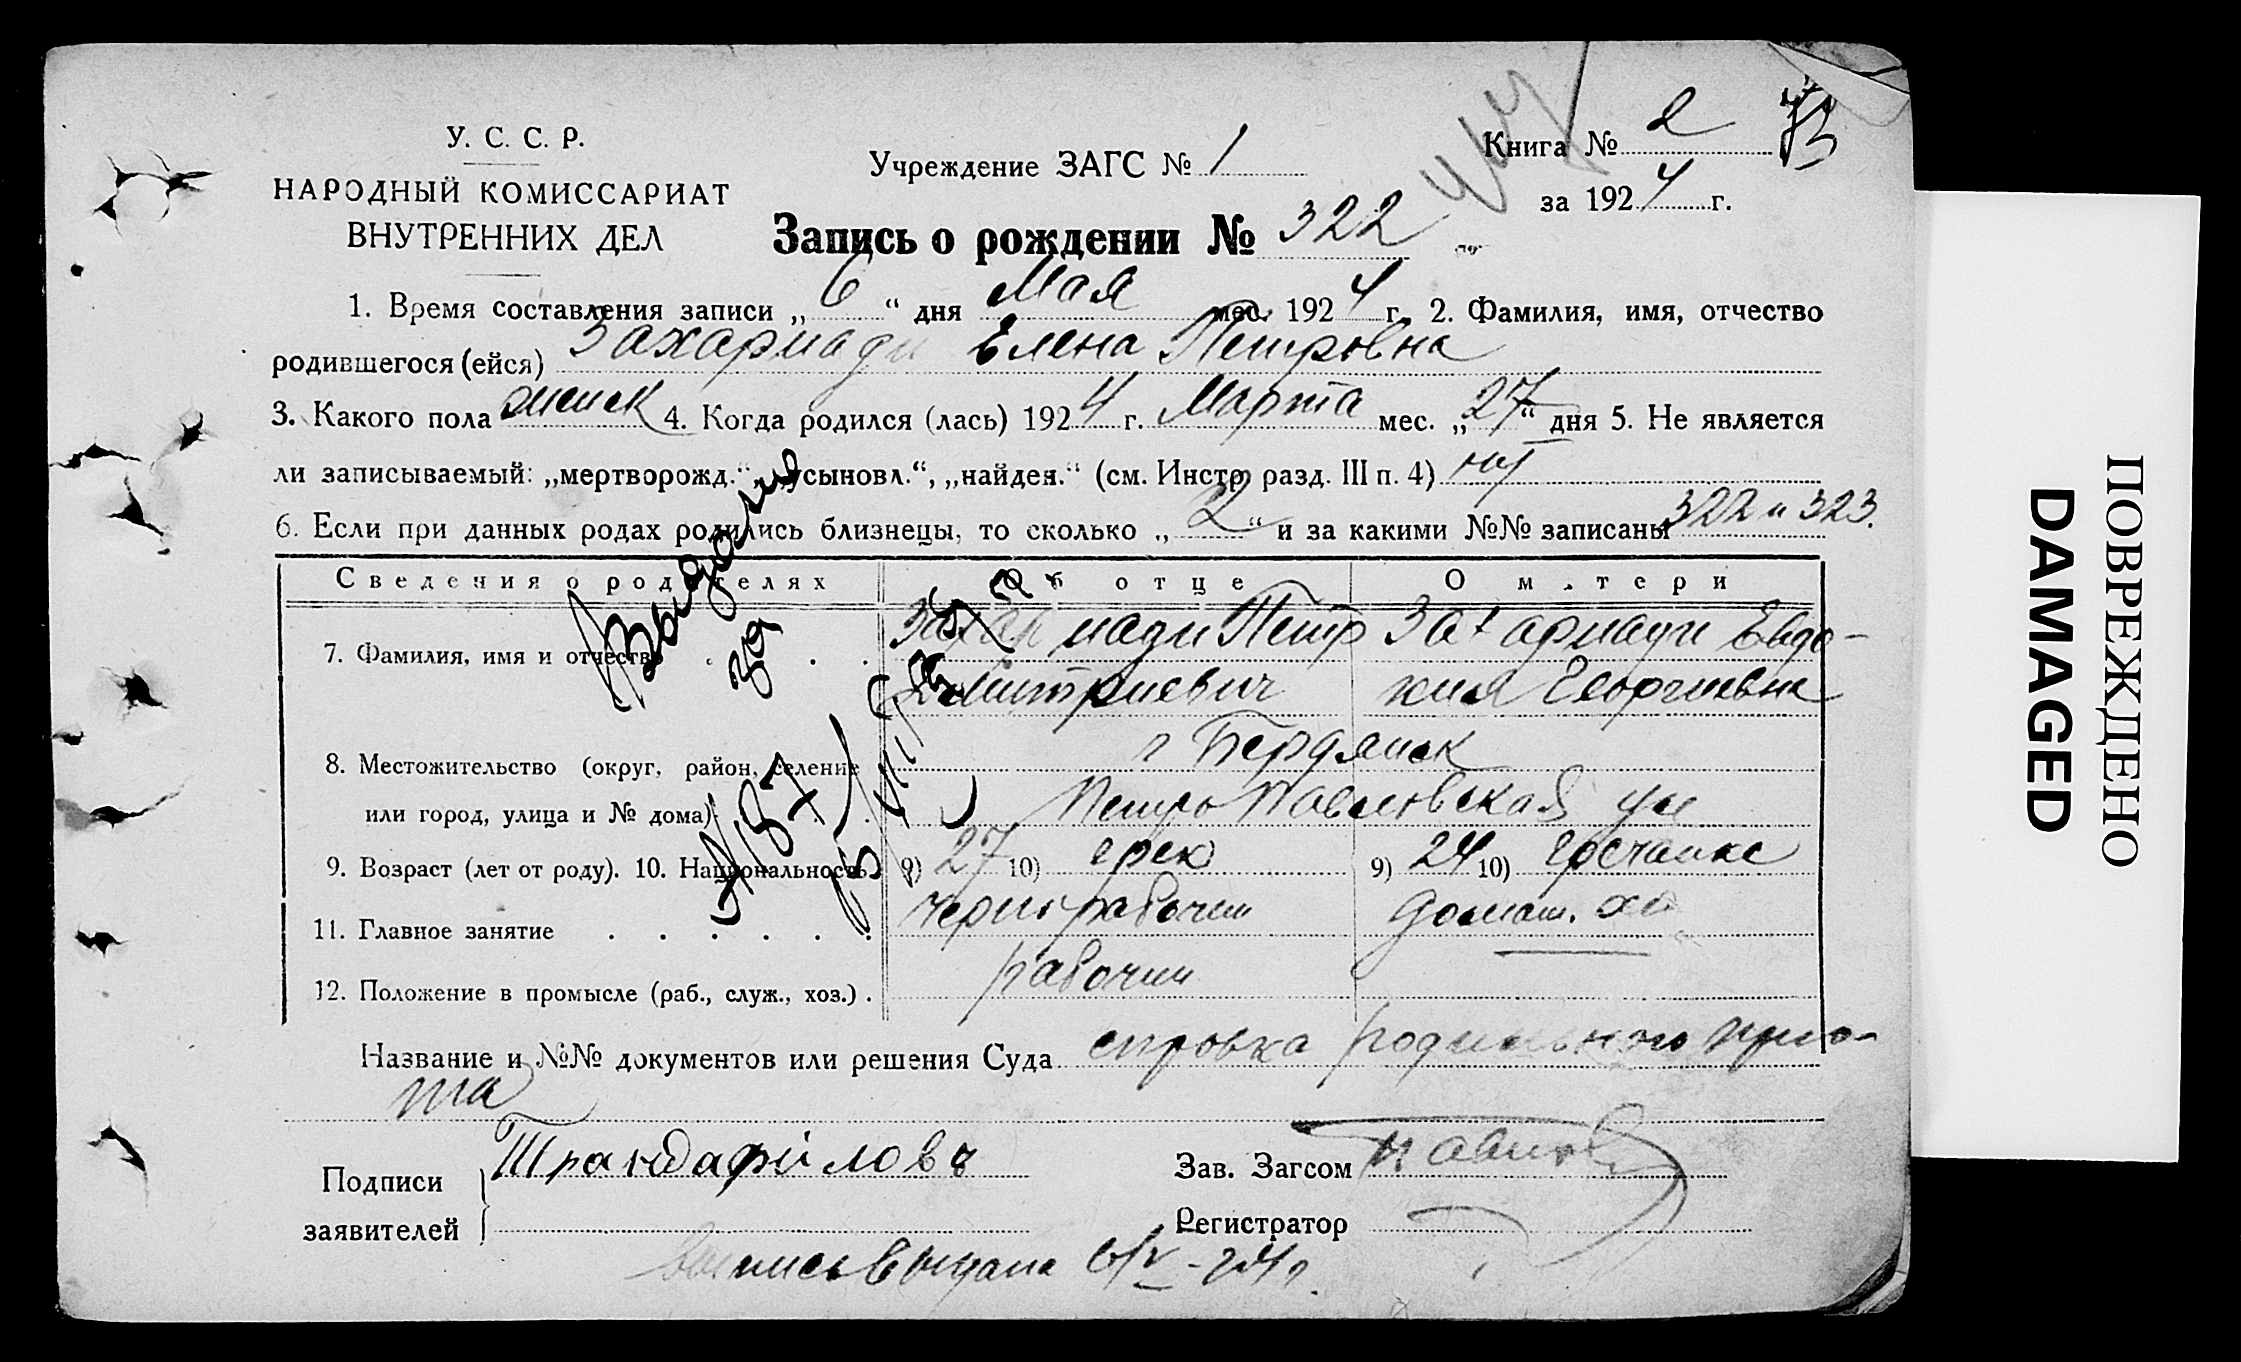 У. С. С. Р.
НАРОДНЫЙ КОМИССАРИАТ
ВНУТРЕННИХ ДЕЛ
Учреждение ЗАГС № 1
Книга № 2
за 1924 г.
Запись о рождении № 322
1. Время составления записи „6“ дня Мая мес. 1924 г. 2. Фамилия, имя, отчество
родившегося (ейся) Захариади Елена Петровна
3. Какого пола женск 4. Когда родился (лась) 1924 г. Марта мес. „27“ дня 5. Не является
ли записываемый: „мертворожд.“, „усыновл.“, „найден.“ (см. Инстр. разд. III п. 4) нет
6. Если при данных родах родились близнецы, то сколько „2“ и за какими №№ записаны 322 и 323.
Сведения о родителях Об отце О матери
7. Фамилия, имя и отчество Захариади Петр Захариади Евдо-
Дмитриевич кия Георгиевна
8. Местожительство (округ, район, селение г Бердянск
или город, улица и № дома) Петро Павловская ул
9. Возраст (лет от роду). 10. Национальность. 9) 27 10) грек 9) 24 10) гречанка
11. Главное занятие чернорабочий домаш. хоз
12. Положение в промысле (раб., служ., хоз.) рабочий
Название и №№ документов или решения Суда справка родильного прию-
та
Подписи заявителей Трандафиловъ
Зав. Загсом
Регистратор
выпись выдана 6/V-24 г.
ПОВРЕЖДЕНО
DAMAGED